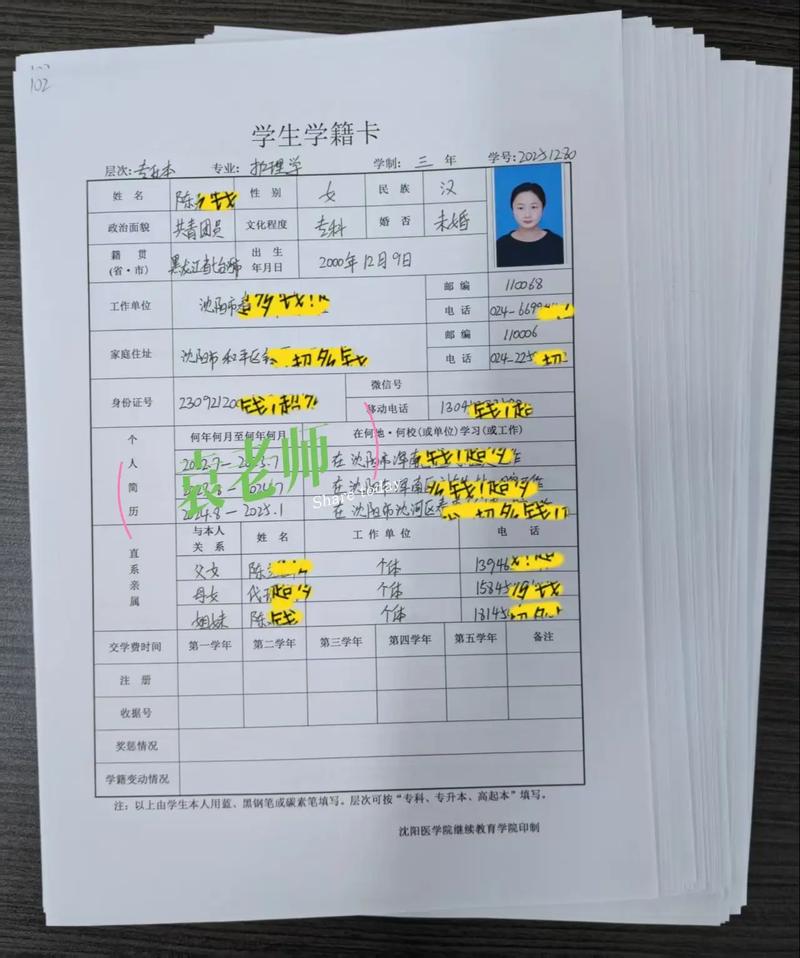 102
学生学籍卡
层次:专升本 专业:护理学 学制:三 年 学号:20251230
姓 名 陈 性 别 女 民 族 汉
政治面貌 共青团员 文化程度 专科 婚 否 未婚
籍 贯 (省·市) 黑龙江省七台河市 出 生 年月日 2000年12月9日
工作单位 沈阳市 邮 编 110068
电 话 024-6699
家庭住址 沈阳市和平区 邮 编 110006
电 话 024-225
身份证号 230921200 微信号
移动电话 1304
个人简历 何年何月至何年何月 在何地·何校(或单位)学习(或工作)
在沈阳市浑南
在沈阳市浑南区
2024.8-2025.1 在沈阳市沈河区
袁老师
Share today
直系亲属 与本人关系 姓 名 工 作 单 位 电 话
父女 陈 个体 13946
母女 代 个体 15845
姐妹 陈 个体 18145
交学费时间 第一学年 第二学年 第三学年 第四学年 第五学年 备注
注 册
收据号
奖惩情况
学籍变动情况
注：以上由学生本人用蓝、黑钢笔或碳素笔填写。层次可按“专科、专升本、高起本”填写。
沈阳医学院继续教育学院印制